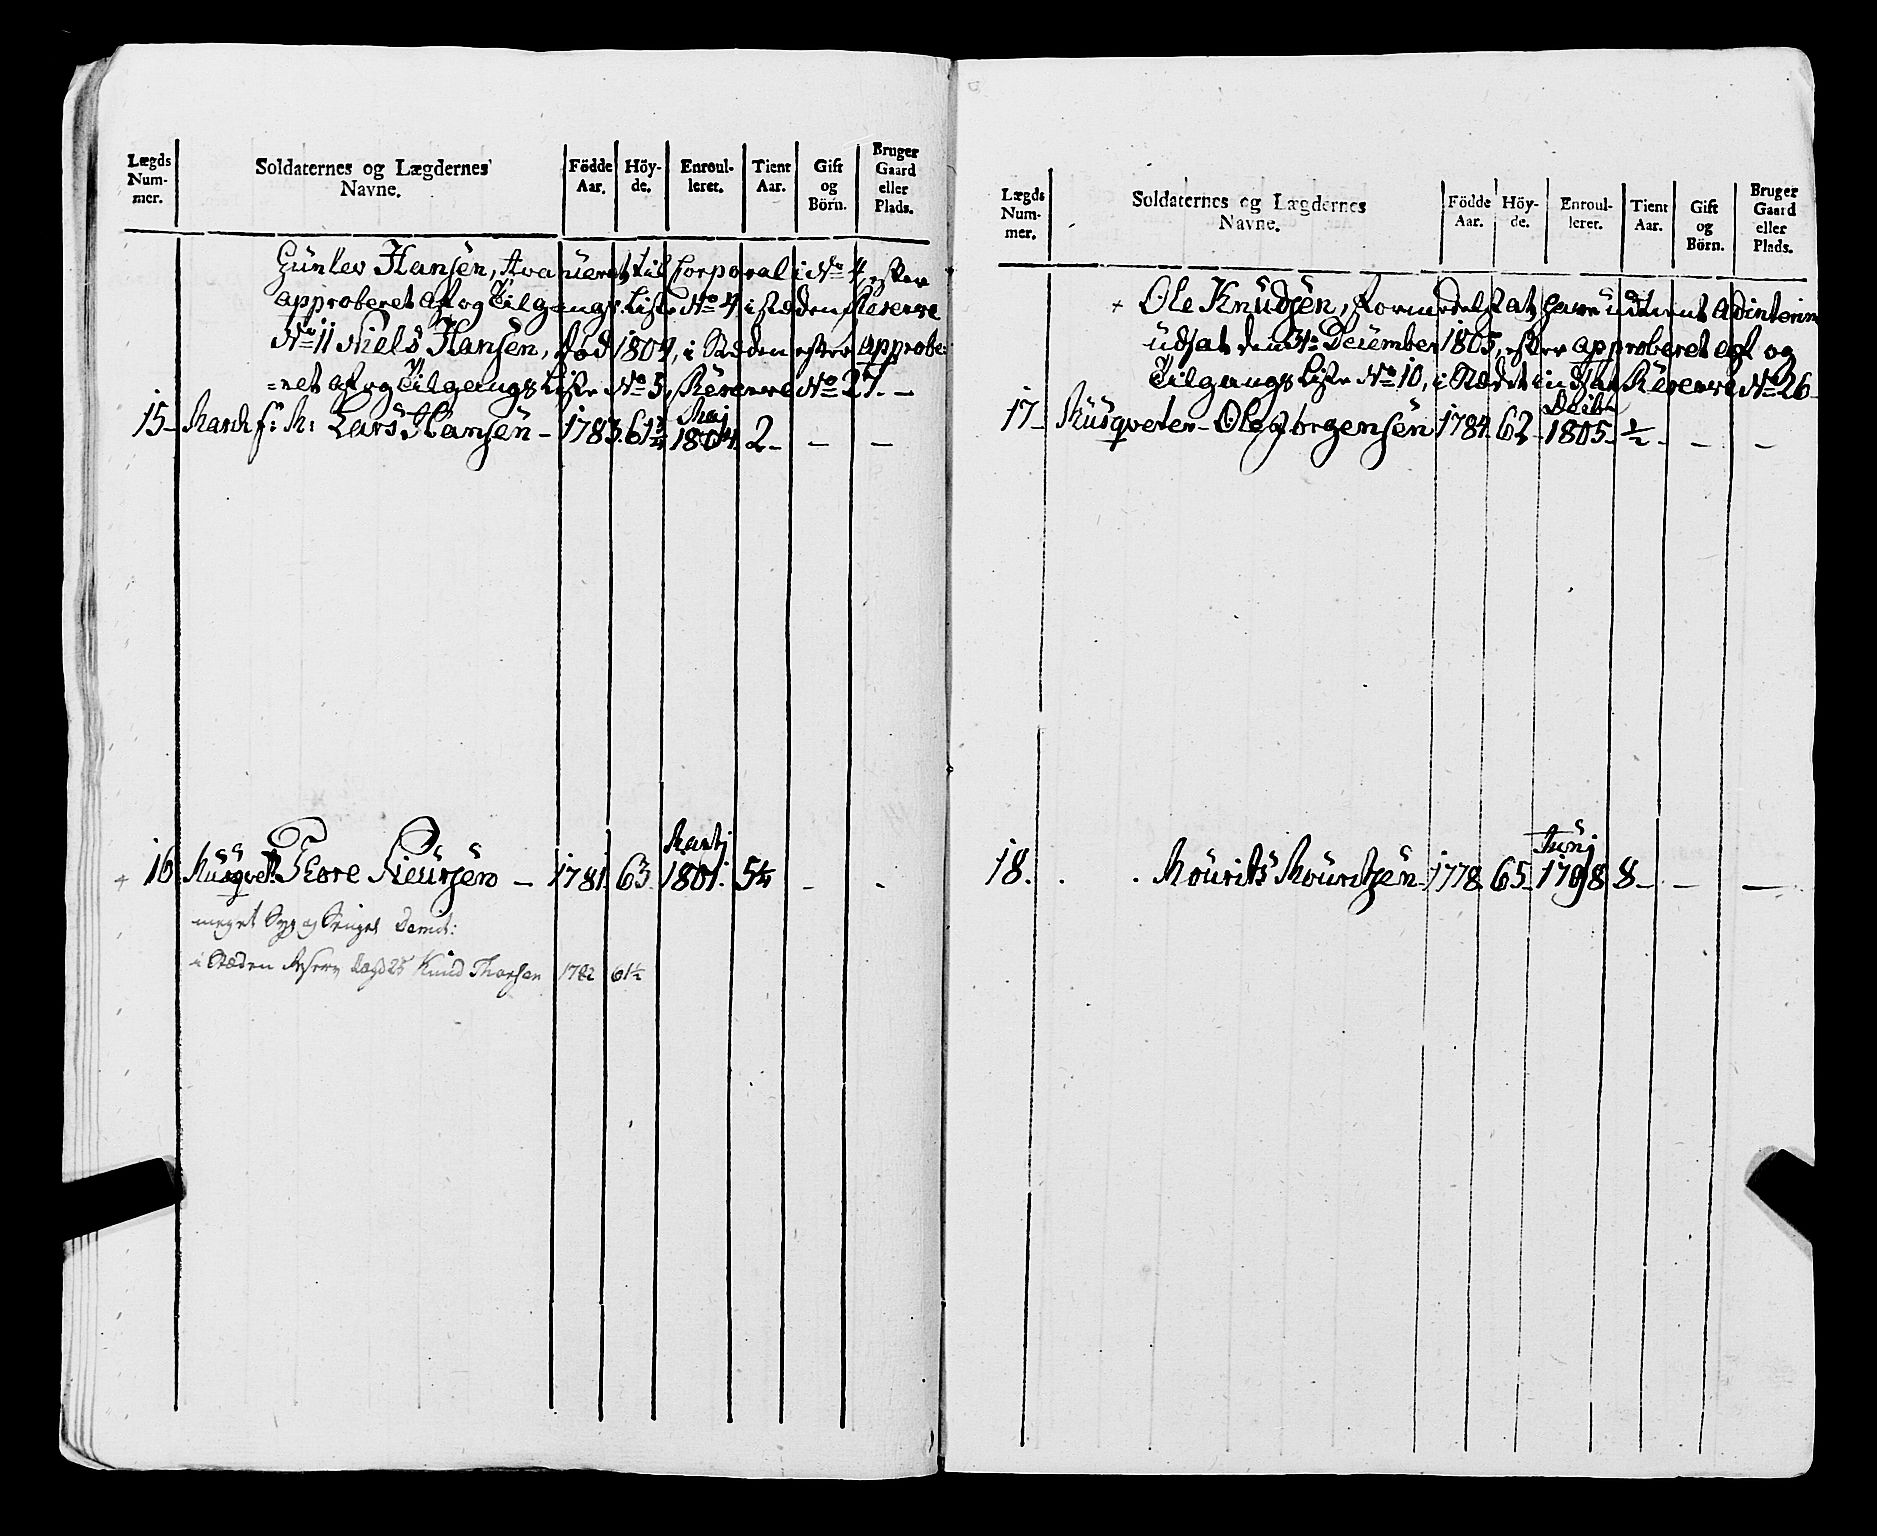 Lægds Num-mer. Soldaternes og Lægdernes Navne. Födde Aar. Höy-de. Enroul-leret. Tient Aar. Gift og Börn. Bruger Gaard eller Plads.
Gunlev Hansen, Avanieret til Corporal i No 4, efter
approberet Af og Tilgangs Liste No 4 i stæden Reserve
No 11 Niels Hansen, død 1804, i Stæden efter approbe-
=ret Af og Tilgangs Liste No 5, Reserve No 27. -
15 - Lars Hansen - 1783. 61 3/4 Maj 1804. 2 - - -
+ 16 Musqvet: Tore Sieursen - 1781. 63. Martj 1801. 5 1/4 - -
meget Syg og Sengel
i Stæden Reserv Lægd 25 Knud Thorsen 1782 61 1/2
Lægds Num-mer. Soldaternes og Lægdernes Navne. Födde Aar. Höy-de. Enroul-leret. Tient Aar. Gift og Börn. Bruger Gaard eller Plads.
+ Ole Knudsen, formedelst at have udtient Adinterim
udsat den 31te December 1805, efter approberet Af og
Tilgangs Liste No 10, i Stædet indsat Reserve No 26 -
17 - Musqveter - Ole Jörgensen 1784. 62 - Decbr 1805 - 1/2 - - -
18. Mourits Mouritzen - 1778 65 - Junj 1798 8 - - -